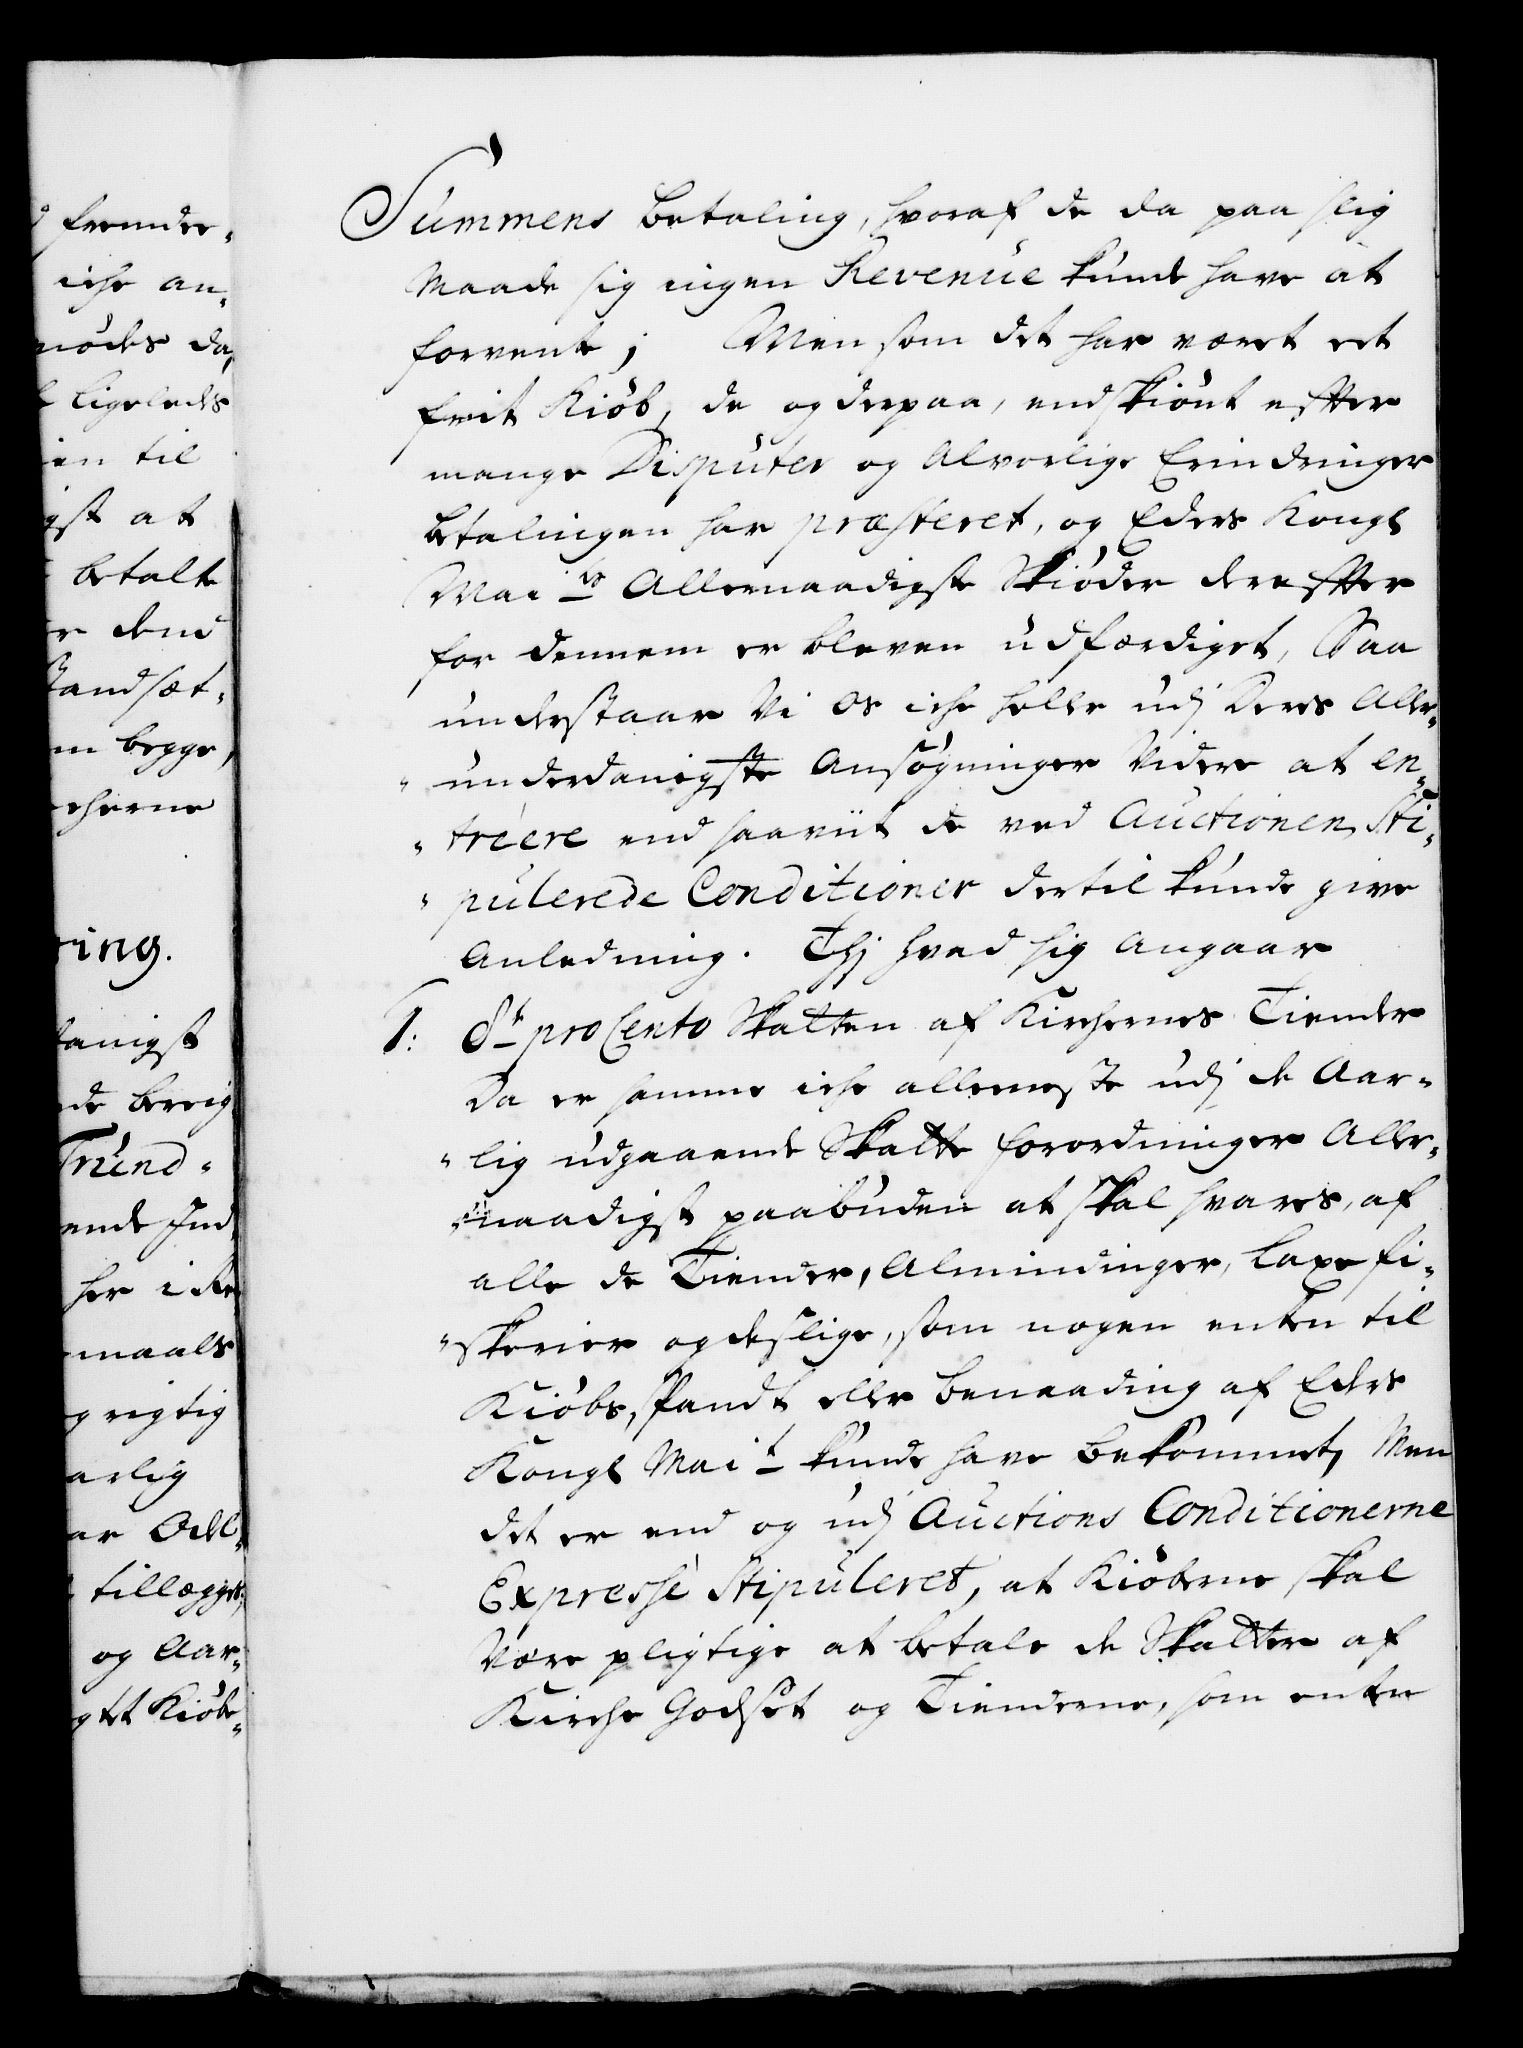 Summens betaling, hvoraf de da paa slig
Maade sig ingen Revenue kunde have at
forvente; Men som det har været eet
frit Kiöb, de og derpaa, endskiönt effter
mange Disputer og Alvorlige Erindringer
betalingen har præsteret, og Eders Kongl
Mai:ts Allernaadigste Skiöder dereffter
for dennem er bleven udfærdiget, Saa
understaar Vi os iche heller udj Deres Aller„
„underdanigste Ansögninger Videre at en„
„treere end saaviit de ved Auctionen Sti„
„pulerede Conditioner dertil kunde give
Anledning. Thj hvad sig Angaar
1: 8te pro Cento Skatten af Kirchernes Tiender
Da er samme iche alleeneste udj de Aar„
„lig udgaaende Skatte forordninger Aller„
„naadigst paabuden at skal svares, af
alle de Tiender, Almindinger, Laxefi„
„skerier og deslige, som nogen enten til
Kiöbs, Pandt eller benaading af Eders
Kongl Mai:t kunde have bekommet, Men
det er end og udj Auctions Conditionerne
Expresse Stipuleret, at Kiöberne skal
Være pligtige at betale de Skatter af
Kirche Godset og Tienderne, som enten
fremder„
iche an„
nödes da,
ligeledes
ien til
igst at
betalte
er dend
standsæt„
em begge,
cherne
ring.
danigst
Trund„
ende Ind
her i Re
emaals
g rigtig
arlig
ar Odel„
tillægget,
og Aar„
gtet Kiöbe„